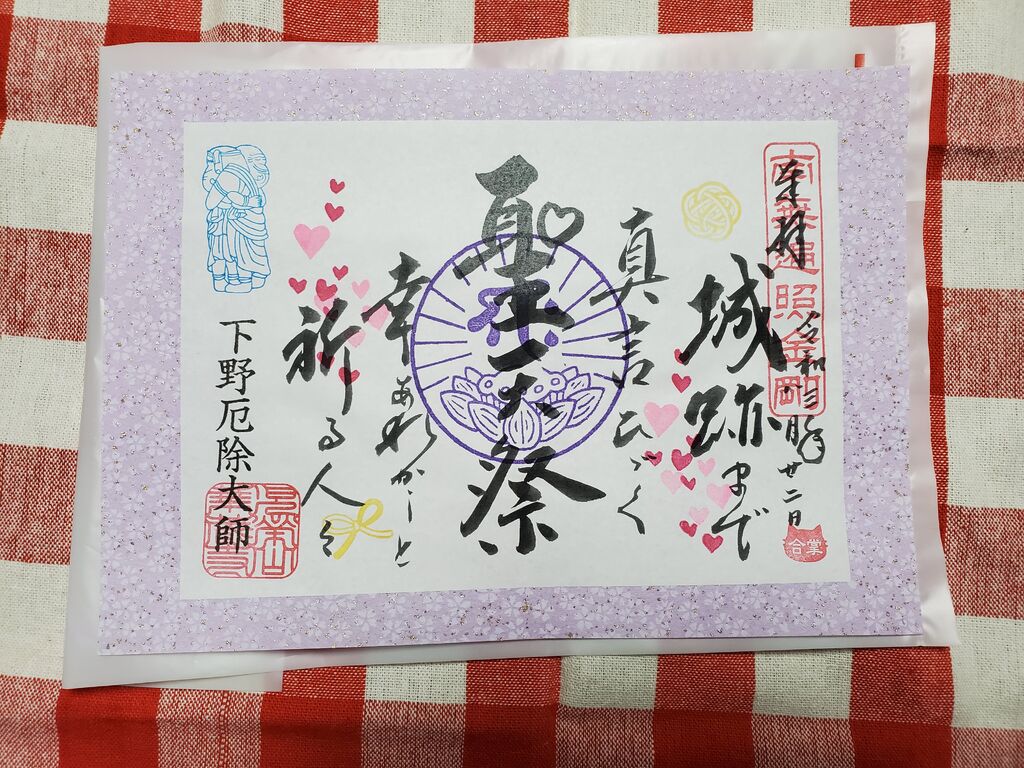 奉拝
南無遍照金剛
令和
廿二日
合掌
城跡まで
真言ひゞく
聖大祭
幸あれかしと
祈る人々
下野厄除大師